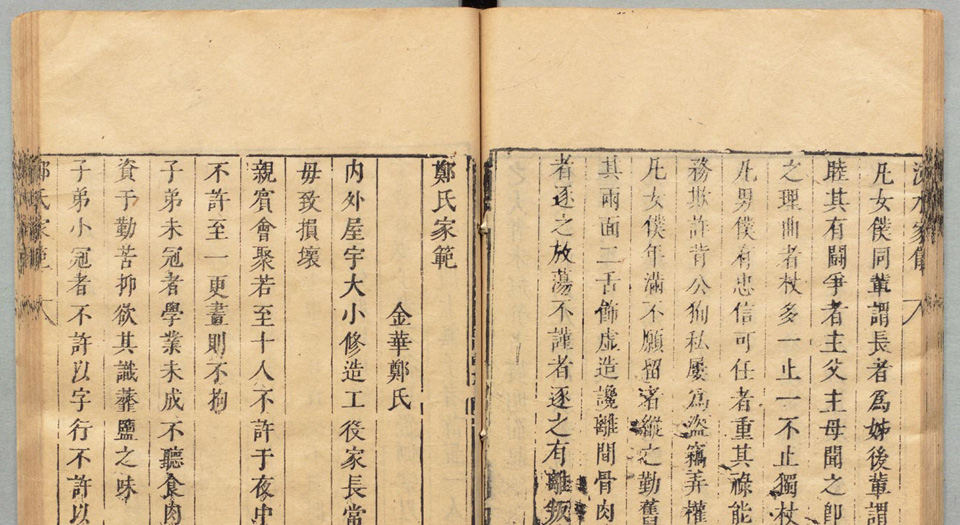 涑水家儀 八
凡女僕同輩謂長者為姊後輩謂
睦其有鬭爭者主父主母聞之卽
之理曲者杖多一止一不止獨杖
凡男僕有忠信可任者重其祿能
務欺詐背公狥私屢為盜竊弄權
凡女僕年滿不願留者縱之勤舊
其兩面二舌飾虛造讒離間骨肉
者逐之放蕩不謹者逐之有離叛
鄭氏家範
金華鄭氏
內外屋宇大小修造工役家長當
毋致損壞
親賓會聚若至十人不許于夜中
不許至一更晝則不拘
子弟未冠者學業未成不聽食肉
資于勤苦抑欲其識虀鹽之味
子弟小冠者不許以字行不許以
鄭氏家範 八